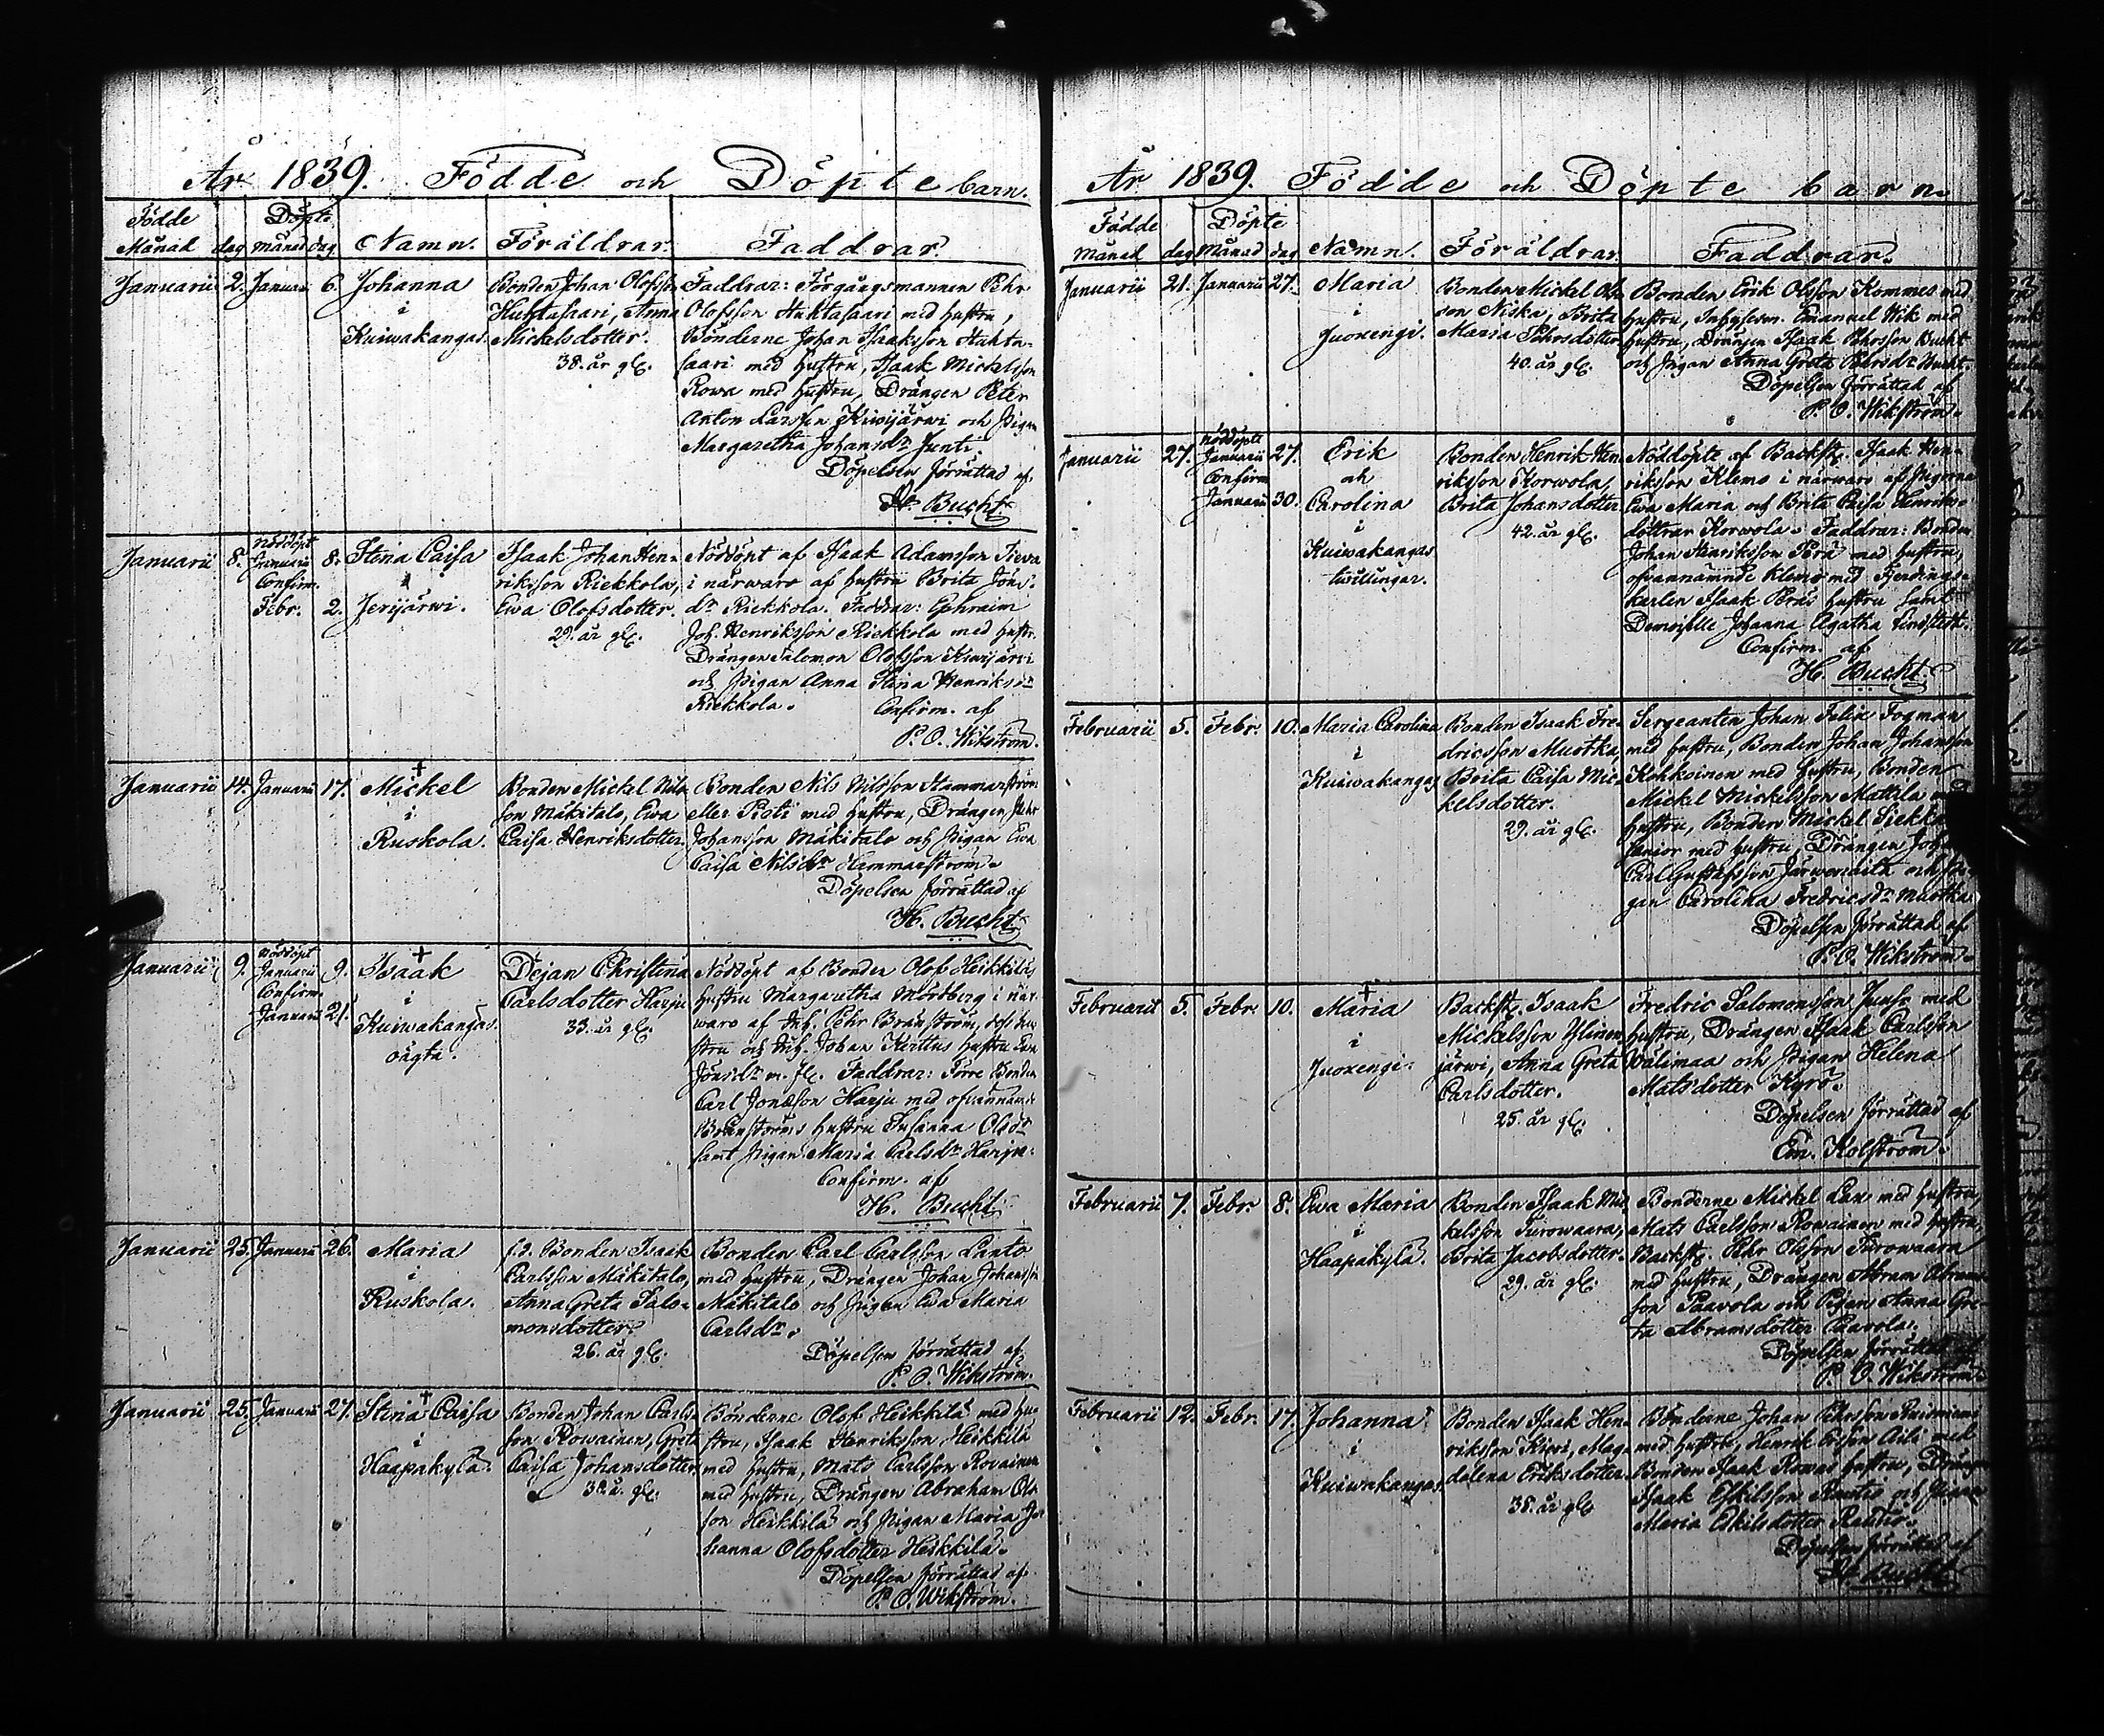 År 1839. Födde och Döpte barn.
Födde Månad dag Döpte månad dag Namn. Föräldrar. Faddrar.
Januarii 2. Januari 6. Johanna
i
Kuiwakangas.
Bonden Johan Olofsson
Huhtasaari, Anna
Mickelsdotter.
38. år gl.
Faddrar: Förgångsmannen Pehr
Olofsson Huhtasaari med hustru,
Bönderne Johan Isaaksson Huhta-
saari med hustru, Isaak Mickelsson
Rowa med hustru, Drängen Peter
Anton Larsson Kiwijärwi och Pigan
Margaretha Johansdr Junti.
Döpelsen förrättad af
H. Bucht
Januarii 8. nöddöpt Januarii 8.
Confirm.
Febr. 2.
Stina Caisa
i
Jerijärwi.
Isaak Johan Hen-
riksson Riekkola,
Ewa Olofsdotter.
29. år gl.
Nöddöpt af Isaak Adamsson
i närwaro af hustru Brita Jöns-
dr Riekkola. Faddrar: Ephraim
Joh. Henriksson Riekkola med hustr.
Drängen Salomon Olofsson Kiwijärwi
och Pigan Anna Stina Henriksdr
Riekkola. Confirm. af
P. O. Wikström.
Januarii 14. Januarii 17. Mickel
i
Ruskola.
Bonden Mickel Nils-
son Mäkitalo, Ewa
Caisa Henriksdotter
Bonden Nils Nilsson Hammarström
eller Pioti med hustru, Drängen Pehr
Johansson Mäkitalo och Pigan Ewa
Caisa Nilsdr Hammarström.
Döpelsen förrättad af
H. Bucht
Januarii 9. nöddöpt Januarii 9.
Confirm.
Januarii 21.
Isaak
i
Kuiwakangas.
oägta.
Dejan Christina
Carlsdotter Harju
33. år gl.
Nöddöpt af Bonden Olof Heikkiläs
hustru Margaretha Mörtberg i när-
waro af Inh. Pehr Brännström, dess hu-
stru och Inh. Johan Kerttus hustru Ewa
Jönsdr m. fl. Faddrar: Förre Bonden
Carl Jonæson Harju med ofvannämde
Brännströms hustru Susanna Olsdr
samt Pigan Maria Carlsdr Harju.
Confirm. af
H. Bucht
Januarii 25. Januarii 26. Maria
i
Ruskola.
f.d. Bonden Isaak
Carlsson Mäkitalo,
Anna Greta Salo-
monsdotter.
26. år gl.
Bonden Carl Carlsson Lanto
med hustru, Drängen Johan Johansson
Mäkitalo och Pigan Ewa Maria
Carlsdr.
Döpelsen förrättad af
P. O. Wikström.
Januarii 25. Januarii 27. Stina Caisa
i
Haapakylä.
Bonden Johan Carls-
son Rowainen, Greta
Caisa Johansdotter
år gl.
Bönderne Olof Heikkilä med hu-
stru, Isaak Henriksson Heikkilä
med hustru, Mats Carlsson Rovainen
med hustru, Drängen Abraham Ols-
son Heikkilä och Pigan Maria Jo-
hanna Olofsdotter Heikkilä.
Döpelsen förrättad af
P. O. Wikström.
År 1839. Födde och Döpte barn.
Födde månad dag Döpte Månad dag Namn. Föräldrar. Faddrar.
Januarii 21. Januarii 27. Maria
i
Juoxengi.
Bonden Mickel Ols-
son Niska, Brita
Maria Pehrsdotter
40. år gl.
Bonden Erik Olsson Kommes med
hustru, Inhysesm. Emanuel Wik med
hustru, Drängen Isaak Pehrsson Bucht
och Pigan Anna Greta Pehrsdr Bucht.
Döpelsen förrättad af
P. O. Wikström.
Januarii 27. nöddöpte Januarii 27.
Confirm
Januarii 30.
Erik
och
Carolina
i
Kuiwakangas
twillingar.
Bonden Henrik Hen-
riksson Korwola,
Brita Johansdotter
42. år gl.
Nöddöpte af Backst. Isaak Hen-
riksson Klemo i närwaro af Pigorna
Ewa Maria och Brita Caisa Henriks-
döttrar Korwola. Faddrar: Bonden
Johan Henriksson Perä med hustru,
ofvannämnde Klemo med Fjerdings-
karlen Isaak Peräs hustru samt
Demoiselle Johanna Agatha Lindstedt.
Confirm. af
H. Bucht.
Februarii 5. Febr. 10. Maria Carolina
i
Kuiwakangas
Bonden Isaak Fre-
dricsson Muotka,
Brita Caisa Mic-
kelsdotter.
29. år gl.
Sergeanten Johan Felix Fogman
med hustru, Bonden Johan Johansson
Kohkoinen med hustru, Bonden
Mickel Mickelsson Mattila med
hustru, Bonden Mickel
junior med hustru, Drängen
Carl Gustafsson och Pi-
gan Carolina Fredricsdr Muotka
Döpelsen förrättad af
P. O. Wikström.
Februarii 5. Febr. 10. Maria
i
Juoxengi.
Backst. Isaak
Mickelsson Ylinen-
järwi, Anna Greta
Carlsdotter.
25. år gl.
Fredric Salomonsson Juuso med
hustru, Drängen Isaak Carlsson
Wälimaa och Pigan Helena
Matsdotter Kyrö.
Döpelsen förrättad af
Em. Kolström.
Februarii 7. Febr. 8. Ewa Maria
i
Haapakylä.
Bonden Isaak Mic-
kelsson Turowaara,
Brita Jacobsdotter.
29. år gl.
Bönderne Mickel Lax med hustru,
Mats Carlsson Rowainen med hustru,
Backst. Pehr Olsson Turowaara
med hustru, Drängen Abram Abrams-
son Paavola och Pigan Anna Gre-
ta Abramsdotter Paavola.
Döpelsen förrättad af
P. O. Wikström.
Februarii 12. Febr. 17. Johanna
i
Kuiwakangas
Bonden Isaak Hen-
riksson Kiwi, Mag-
dalena Eriksdotter
35. år gl.
Bönderne Johan Pehrsson
med hustru, Henrik Aili med
Bonden Isaak Rowas hustru, Drängen
Isaak Eskilsson Rautio och Pigan
Maria Eskilsdotter Rautio.
Döpelsen förrättad af
H. Bucht